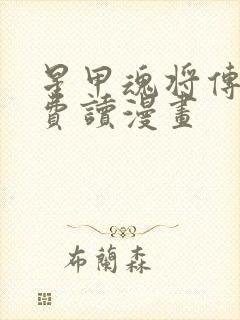 星甲魂将傳
費讀漫畫
布蘭森